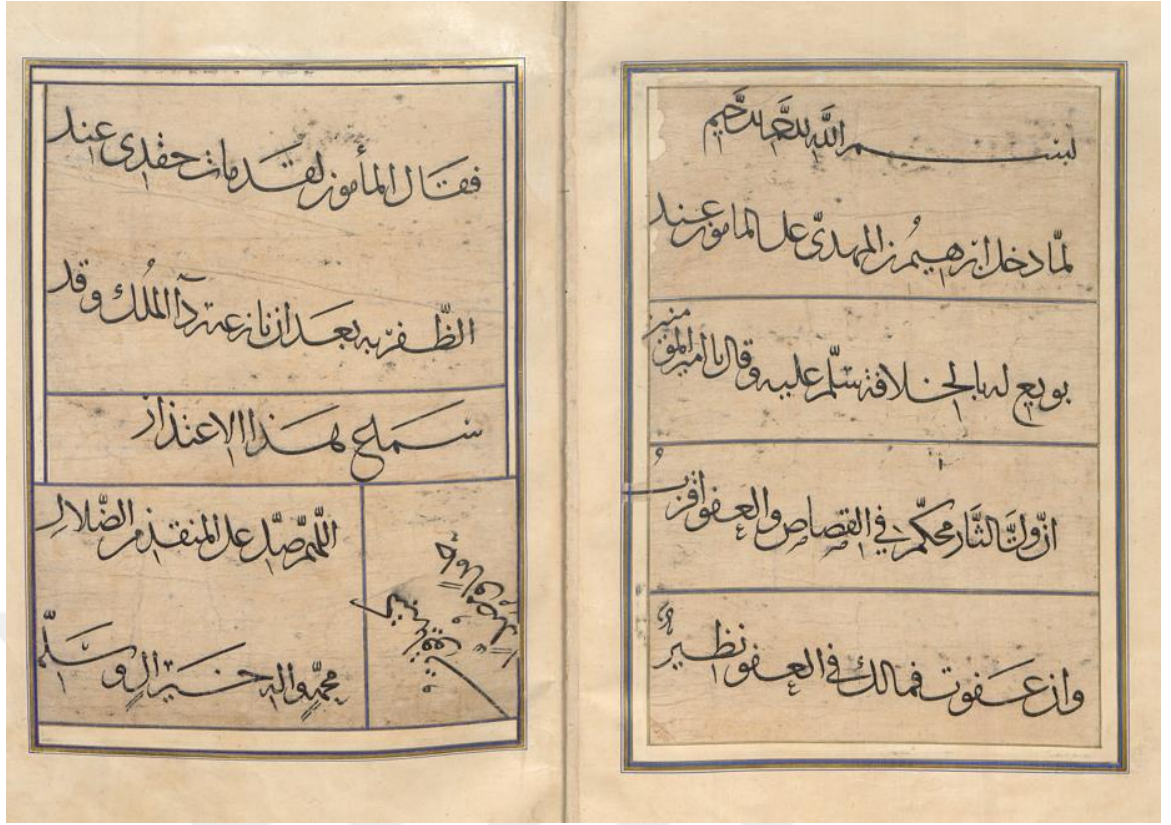 بسم الله الرحمن الرحيم
لمّا دخل ابرهيمُ بن المهدىّ على المامون عند
بويع له بالخلافة سلّم عليه وقال يا امير المؤمنين
انّ ولىّ الثّار محكّم في القصاص والعفو اقربُ
وان عفوت فمالك في العفو نظيرٌ
فقال المأمون لقد مات حقدى عند
الظّفر به بعد ان نازعته ردآ الملك وقد
سمع هذا الاعتذار
اللّهمّ صلّ على المنقذ من الضّلال
محمد واله خير ال وسلّم